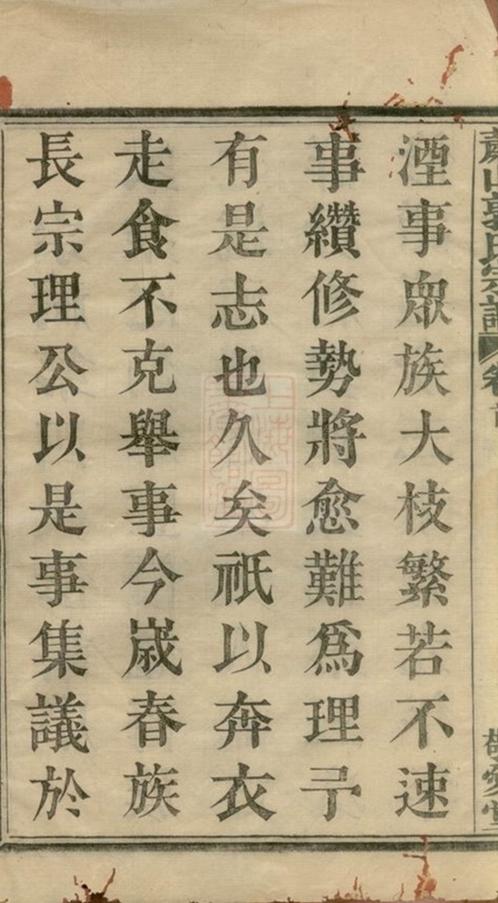 蕭山郭氏宗譜 卷首
湮事眾族大枝繁若不速
事纘修勢將愈難爲理予
有是志也久矣祇以奔衣
走食不克舉事今嵗春族
長宗理公以是事集議於